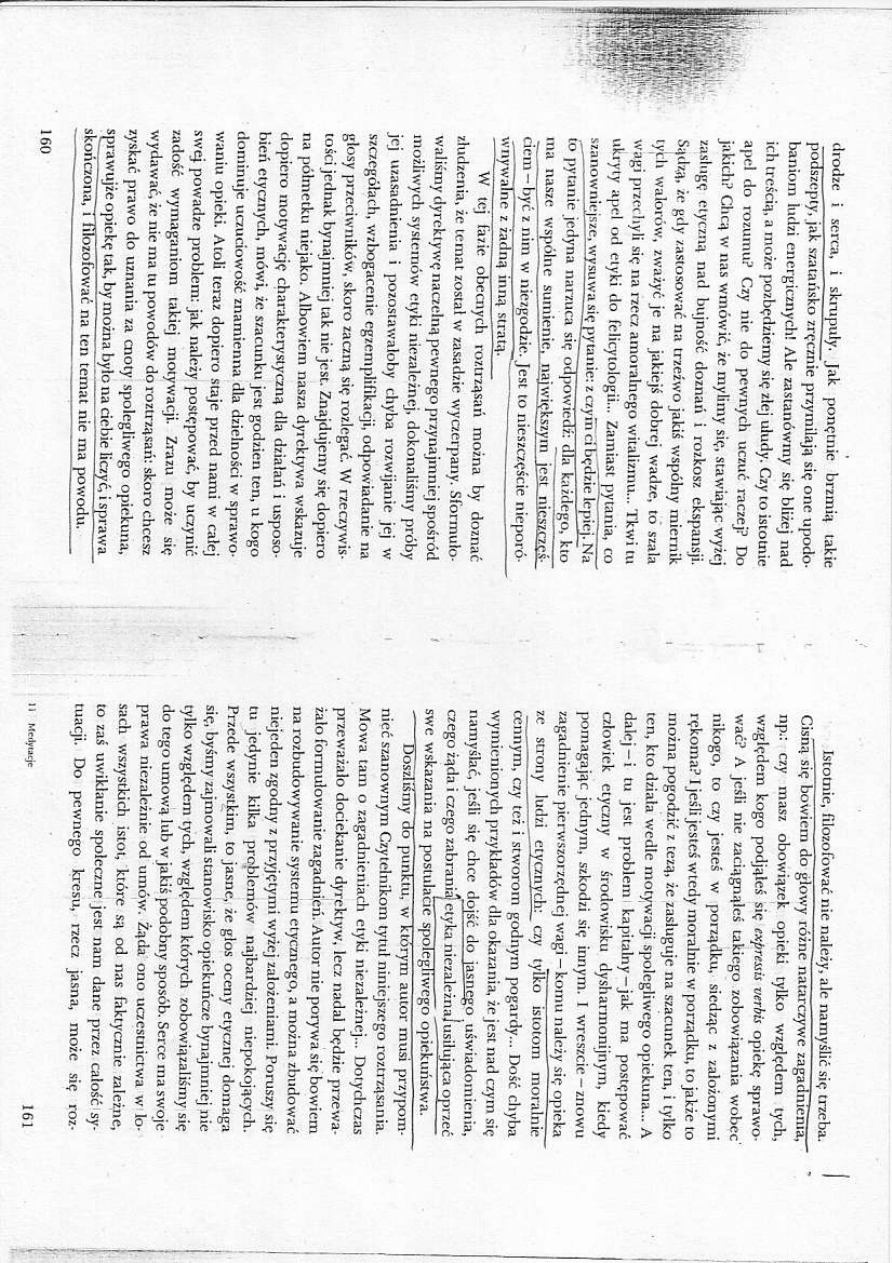 drodze i serca, i skrupuły. Jak ponętnie brzmią takie
podszepty, jak szatańsko zręcznie przymilają się one upodo-
baniom ludzi energicznych! Ale zastanówmy się bliżej nad
ich treścią, a może pozbędziemy się złej ułudy. Czy to istotnie
apel do rozumu? Czy nie do pewnych uczuć raczej? Do
jakich? Chcą w nas wmówić, że mylimy się, stawiając wyżej
zasługę etyczną nad bujność doznań i rozkosz ekspansji.
Sądzą, że gdy zastosować na trzeźwo jakiś wspólny miernik
tych walorów, zważyć je na jakiejś dobrej wadze, to szala
wagi przechyli się na rzecz amoralnego witalizmu... Tkwi tu
ukryty apel od etyki do felicytologii... Zamiast pytania, co
szanowniejsze, wysuwa się pytanie: z czym ci będzie lepiej. Na
to pytanie jedyna narzuca się odpowiedź: dla każdego, kto
ma nasze wspólne sumienie, największym jest nieszczęś-
ciem – być z nim w niezgodzie. Jest to nieszczęście nieporó-
wnywalne z żadną inną stratą.
W tej fazie obecnych roztrząsań można by doznać
złudzenia, że temat został w zasadzie wyczerpany. Sformuło-
waliśmy dyrektywę naczelną pewnego przynajmniej spośród
możliwych systemów etyki niezależnej, dokonaliśmy próby
jej uzasadnienia i pozostawałoby chyba rozwijanie jej w
szczegółach, wzbogacenie egzemplifikacji, odpowiadanie na
głosy przeciwników, skoro zaczną się rozlegać. W rzeczywis-
tości jednak bynajmniej tak nie jest. Znajdujemy się dopiero
na półmetku niejako. Albowiem nasza dyrektywa wskazuje
dopiero motywację charakterystyczną dla działań i usposo-
bień etycznych, mówi, że szacunku jest godzien ten, u kogo
dominuje uczuciowość znamienna dla dzielności w sprawo-
waniu opieki. Atoli teraz dopiero staje przed nami w całej
swej powadze problem: jak należy postępować, by uczynić
zadość wymaganiom takiej motywacji. Zrazu może się
wydawać, że nie ma tu powodów do roztrząsań: skoro chcesz
zyskać prawo do uznania za cnoty spolegliwego opiekuna,
sprawujże opiekę tak, by można było na ciebie liczyć, i sprawa
skończona, i filozofować na ten temat nie ma powodu.
160
Istotnie, filozofować nie należy, ale namyślić się trzeba.
Cisną się bowiem do głowy różne natarczywe zagadnienia,
np.: czy masz obowiązek opieki tylko względem tych,
względem kogo podjąłeś się expressis verbis opiekę sprawo-
wać? A jeśli nie zaciągnąłeś takiego zobowiązania wobec
nikogo, to czy jesteś w porządku, siedząc z założonymi
rękoma? I jeśli jesteś wtedy moralnie w porządku, to jakże to
można pogodzić z tezą, że zasługuje na szacunek ten, i tylko
ten, kto działa wedle motywacji spolegliwego opiekuna... A
dalej – i tu jest problem kapitalny – jak ma postępować
człowiek etyczny w środowisku dysharmonijnym, kiedy
pomagając jednym, szkodzi się innym. I wreszcie – znowu
zagadnienie pierwszorzędnej wagi – komu należy się opieka
ze strony ludzi etycznych: czy tylko istotom moralnie
cennym, czy też i stworom godnym pogardy... Dość chyba
wymienionych przykładów dla okazania, że jest nad czym się
namyślać, jeśli się chce dojść do jasnego uświadomienia,
czego żąda i czego zabrania etyka niezależna, usiłująca oprzeć
swe wskazania na postulacie spolegliwego opiekuństwa.
Doszliśmy do punktu, w którym autor musi przypom-
nieć szanownym Czytelnikom tytuł niniejszego roztrząsania.
Mowa tam o zagadnieniach etyki niezależnej... Dotychczas
przeważało dociekanie dyrektyw, lecz nadal będzie przewa-
żało formułowanie zagadnień. Autor nie porywa się bowiem
na rozbudowywanie systemu etycznego, a można zbudować
niejeden zgodny z przyjętymi wyżej założeniami. Poruszy się
tu jedynie kilka problemów najbardziej niepokojących.
Przede wszystkim, to jasne, że głos oceny etycznej domaga
się, byśmy zajmowali stanowisko opiekuńcze bynajmniej nie
tylko względem tych, względem których zobowiązaliśmy się
do tego umową lub w jakiś podobny sposób. Serce ma swoje
prawa niezależnie od umów. Żąda ono uczestnictwa w lo-
sach wszystkich istot, które są od nas faktycznie zależne,
to zaś uwikłanie społeczne jest nam dane przez całość sy-
tuacji. Do pewnego kresu, rzecz jasna, może się roz-
11 Medytacje
161